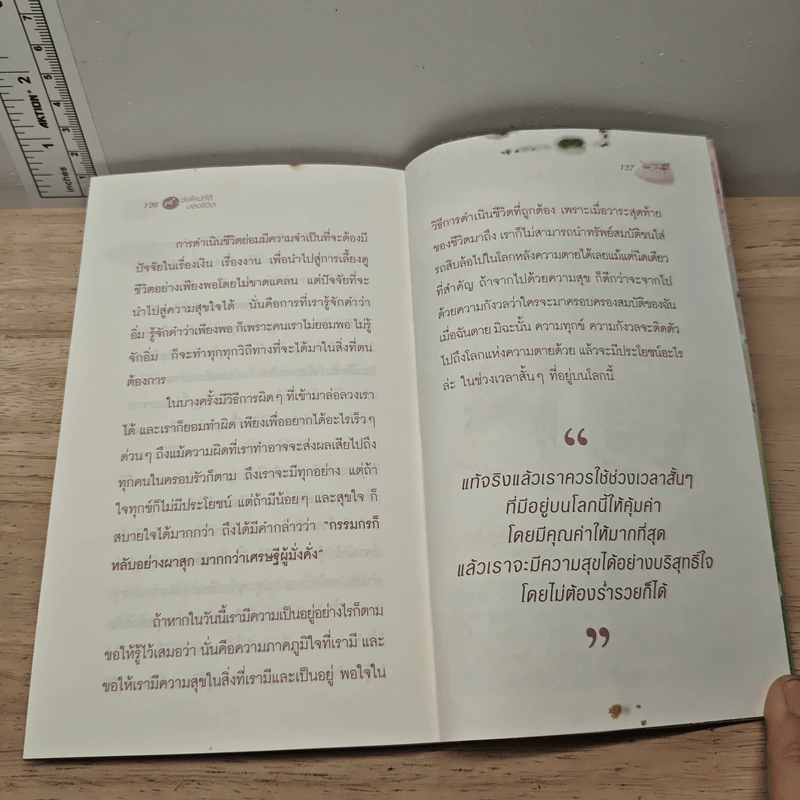 7
2
6
5
AKTION
4
1
3
2
1
inches
126
วันใหม่ที่ดี
ของชีวิต
การดำเนินชีวิตย่อมมีความจำเป็นที่จะต้องมี
ปัจจัยในเรื่องเงิน เรื่องงาน เพื่อนำไปสู่การเลี้ยงดู
ชีวิตอย่างเพียงพอโดยไม่ขาดแคลน แต่ปัจจัยที่จะ
นำไปสู่ความสุขใจได้ นั่นคือการที่เรารู้จักคำว่า
อิ่ม รู้จักคำว่าเพียงพอ ก็เพราะคนเราไม่ยอมพอ ไม่รู้
จักอิ่ม ก็จะทำทุกทุกวิถีทางที่จะได้มาในสิ่งที่ตน
ต้องการ
ในบางครั้งมีวิธีการผิดๆ ที่เข้ามาล่อลวงเรา
ได้ และเราก็ยอมทำผิด เพียงเพื่ออยากได้อะไรเร็วๆ
ด่วนๆ ถึงแม้ความผิดที่เราทำอาจจะส่งผลเสียไปถึง
ทุกคนในครอบรัวก็ตาม ถึงเราจะมีทุกอย่าง แต่ถ้า
ใจทุกข์ก็ไม่มีประโยชน์ แต่ถ้ามีน้อยๆ และสุขใจ ก็
สบายใจได้มากกว่า ถึงได้มีคำกล่าวว่า “กรรมกรก็
หลับอย่างผาสุก มากกว่าเศรษฐีผู้มั่งคั่ง”
ถ้าหากในวันนี้เรามีความเป็นอยู่อย่างไรก็ตาม
ขอให้รู้ไว้เสมอว่า นั่นคือความภาคภูมิใจที่เรามี และ
ขอให้เรามีความสุขในสิ่งที่เรามีและเป็นอยู่ พอใจใน
127
วิธีการดำเนินชีวิตที่ถูกต้อง เพราะเมื่อวาระสุดท้าย
ของชีวิตมาถึง เราก็ไม่สามารถนำทรัพย์สมบัติขนใส่
รถสิบล้อไปในโลกหลังความตายได้เลยแม้แต่นิดเดียว
ที่สำคัญ ถ้าจากไปด้วยความสุข ก็ดีกว่าจะจากไป
ด้วยความกังวลว่าใครจะมาครอบครองสมบัติของฉัน
เมื่อฉันตาย มิฉะนั้น ความทุกข์ ความกังวลจะติดตัว
ไปถึงโลกแห่งความตายด้วย แล้วจะมีประโยชน์อะไร
ล่ะ ในช่วงเวลาสั้นๆ ที่อยู่บนโลกนี้
“
แท้จริงแล้วเราควรใช้ช่วงเวลาสั้นๆ
ที่มีอยู่บนโลกนี้ให้คุ้มค่า
โดยมีคุณค่าให้มากที่สุด
แล้วเราจะมีความสุขได้อย่างบริสุทธิ์ใจ
โดยไม่ต้องร่ำรวยก็ได้
”